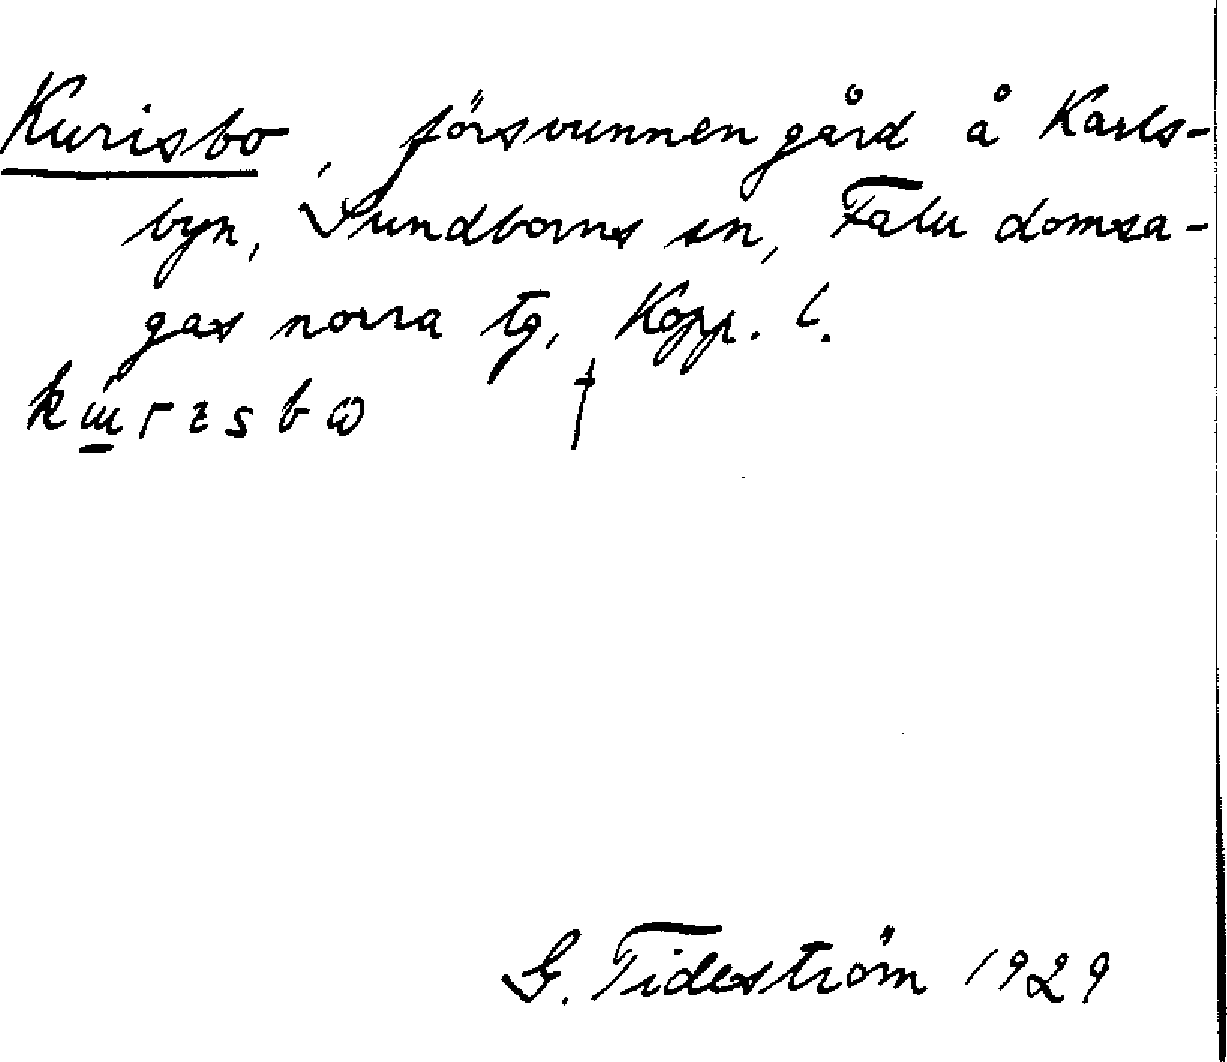 Kurisbo, försvunnen gård å Karls-
byn, Sundborns sn, Falu domsa-
gas norra tg, Kopp. l.
†
G. Tideström 1929